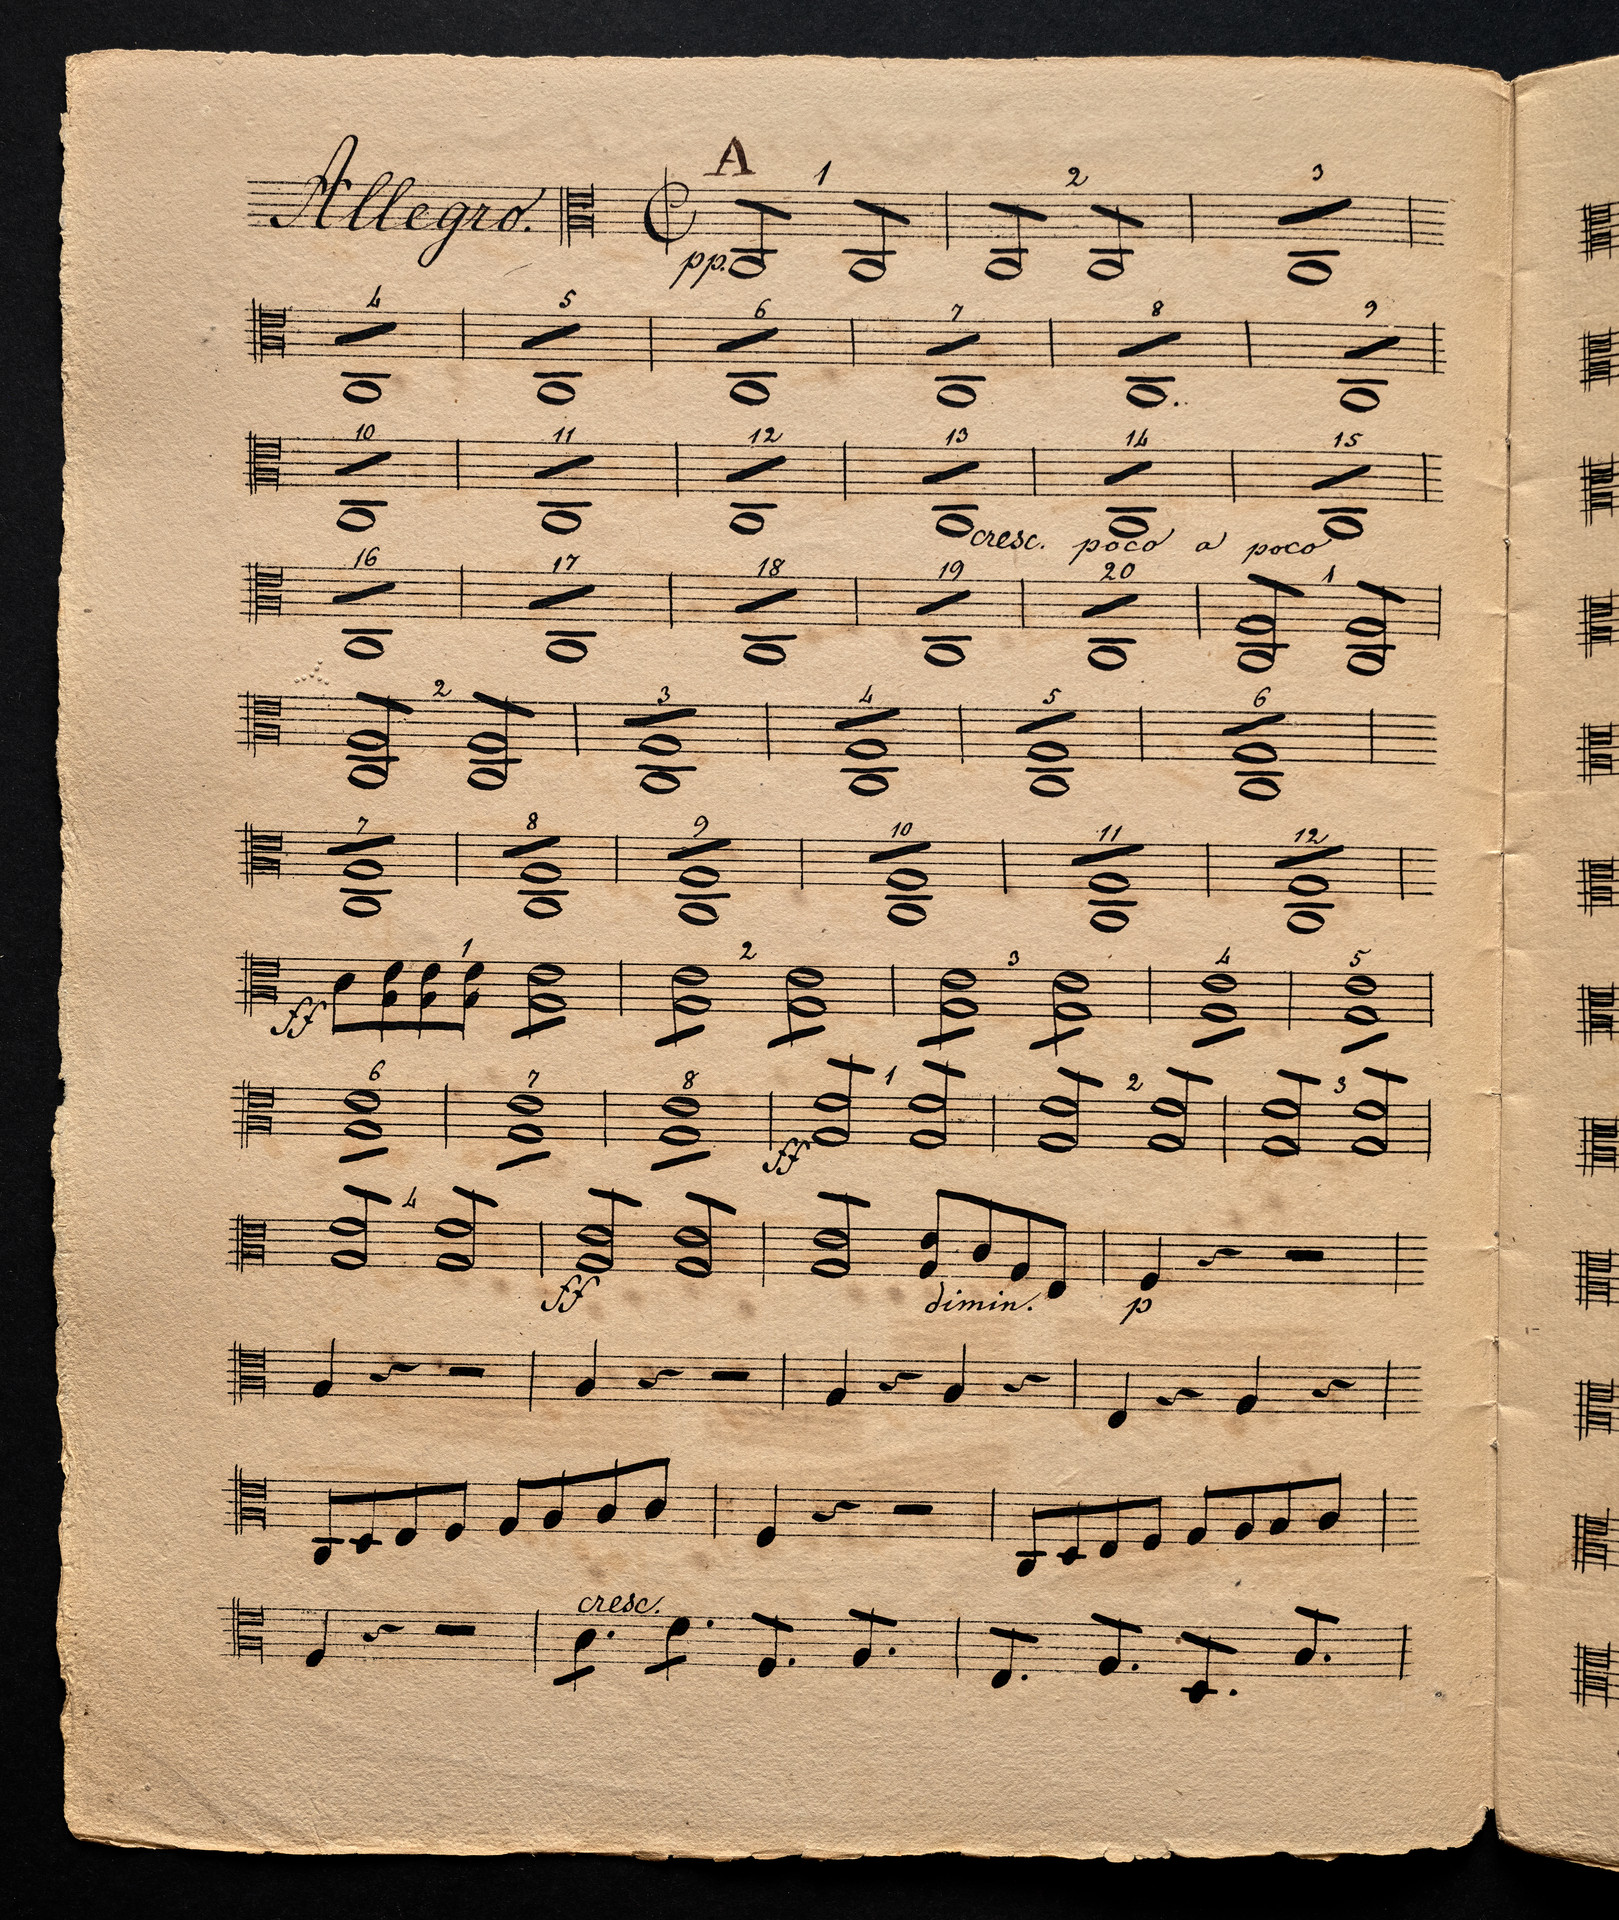 A
1 2 3
Allegro.
pp.
4 5 6 7 8 9
10 11 12 13 14 15
cresc. poco a poco
16 17 18 19 20 1
2 3 4 5 6
7 8 9 10 11 12
1 2 3 4 5
ff
6 7 8 1 2 3
ff
4
ff dimin. p
cresc.